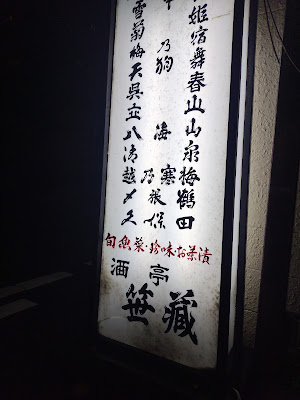 雪中
菊姫
梅乃宿
天狗舞
呉春
立山
八海山
清泉
越乃寒梅
〆張鶴
久保田
旬魚菜・珍味・お茶漬
酒亭
笹藏